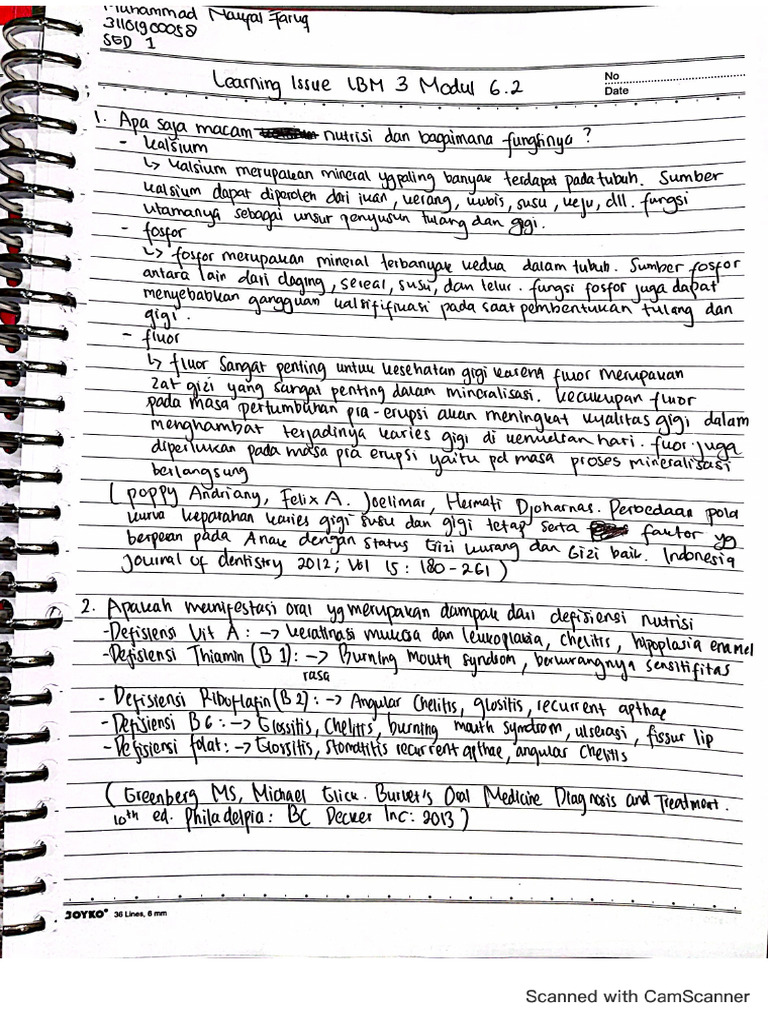 Muhammad Naufal Faruq
31101900058
SGD 1
Learning Issue LBM 3 Modul 6.2
No
Date
1. Apa saja macam nutrisi dan bagaimana fungsinya ?
- kalsium
↳ kalsium merupakan mineral yg paling banyak terdapat pada tubuh. Sumber
kalsium dapat diperoleh dari ikan, kerang, kubis, susu, keju, dll. fungsi
utamanya sebagai unsur penyusun tulang dan gigi.
- fosfor
↳ fosfor merupakan mineral terbanyak kedua dalam tubuh. Sumber fosfor
antara lain dari daging, sereal, susu, dan telur. fungsi fosfor juga dapat
menyebabkan gangguan kalsifikasi pada saat pembentukan tulang dan
gigi.
- fluor
↳ fluor sangat penting untuk kesehatan gigi karena fluor merupakan
zat gizi yang sangat penting dalam mineralisasi. kecukupan fluor
pada masa pertumbuhan pra-erupsi akan meningkat kualitas gigi dalam
menghambat terjadinya karies gigi di kemudian hari. fuor juga
diperlukan pada masa pra erupsi yaitu pd masa proses mineralisasi
berlangsung
( poppy Andriany, Felix A. Joelimar, Hermati Djoharnas. Perbedaan pola
kurva keparahan karies gigi susu dan gigi tetap serta faktor yg
berperan pada Anak dengan status Gizi kurang dan Gizi baik. Indonesia
Journal of dentistry 2012; Vol 15 : 180-261 )
2. Apakah manifestasi oral yg merupakan dampak dari defisiensi nutrisi
- Defisiensi Vit A : -> keratinasi mukosa dan leukoplakia, chelitis, hipoplasia enamel
- Defisiensi Thiamin (B1) : -> Burning Mouth syndrom, berkurangnya sensitifitas
rasa
- Defisiensi Riboflafin (B2) : -> Angular Chelitis, glositis, recurrent apthae
- Defisiensi B6 : -> Glossitis, Chelitis, burning mouth syndrom, ulserasi, fissur lip
- Defisiensi folat : -> Glossitis, stomatitis recurrent apthae, angular Chelitis
( Greenberg MS, Michael Glick. Burket's Oral Medicine Diagnosis and Treatment.
10th ed. Philadelpia : BC Decker Inc : 2013 )
JOYKO® 36 Lines, 6 mm
Scanned with CamScanner